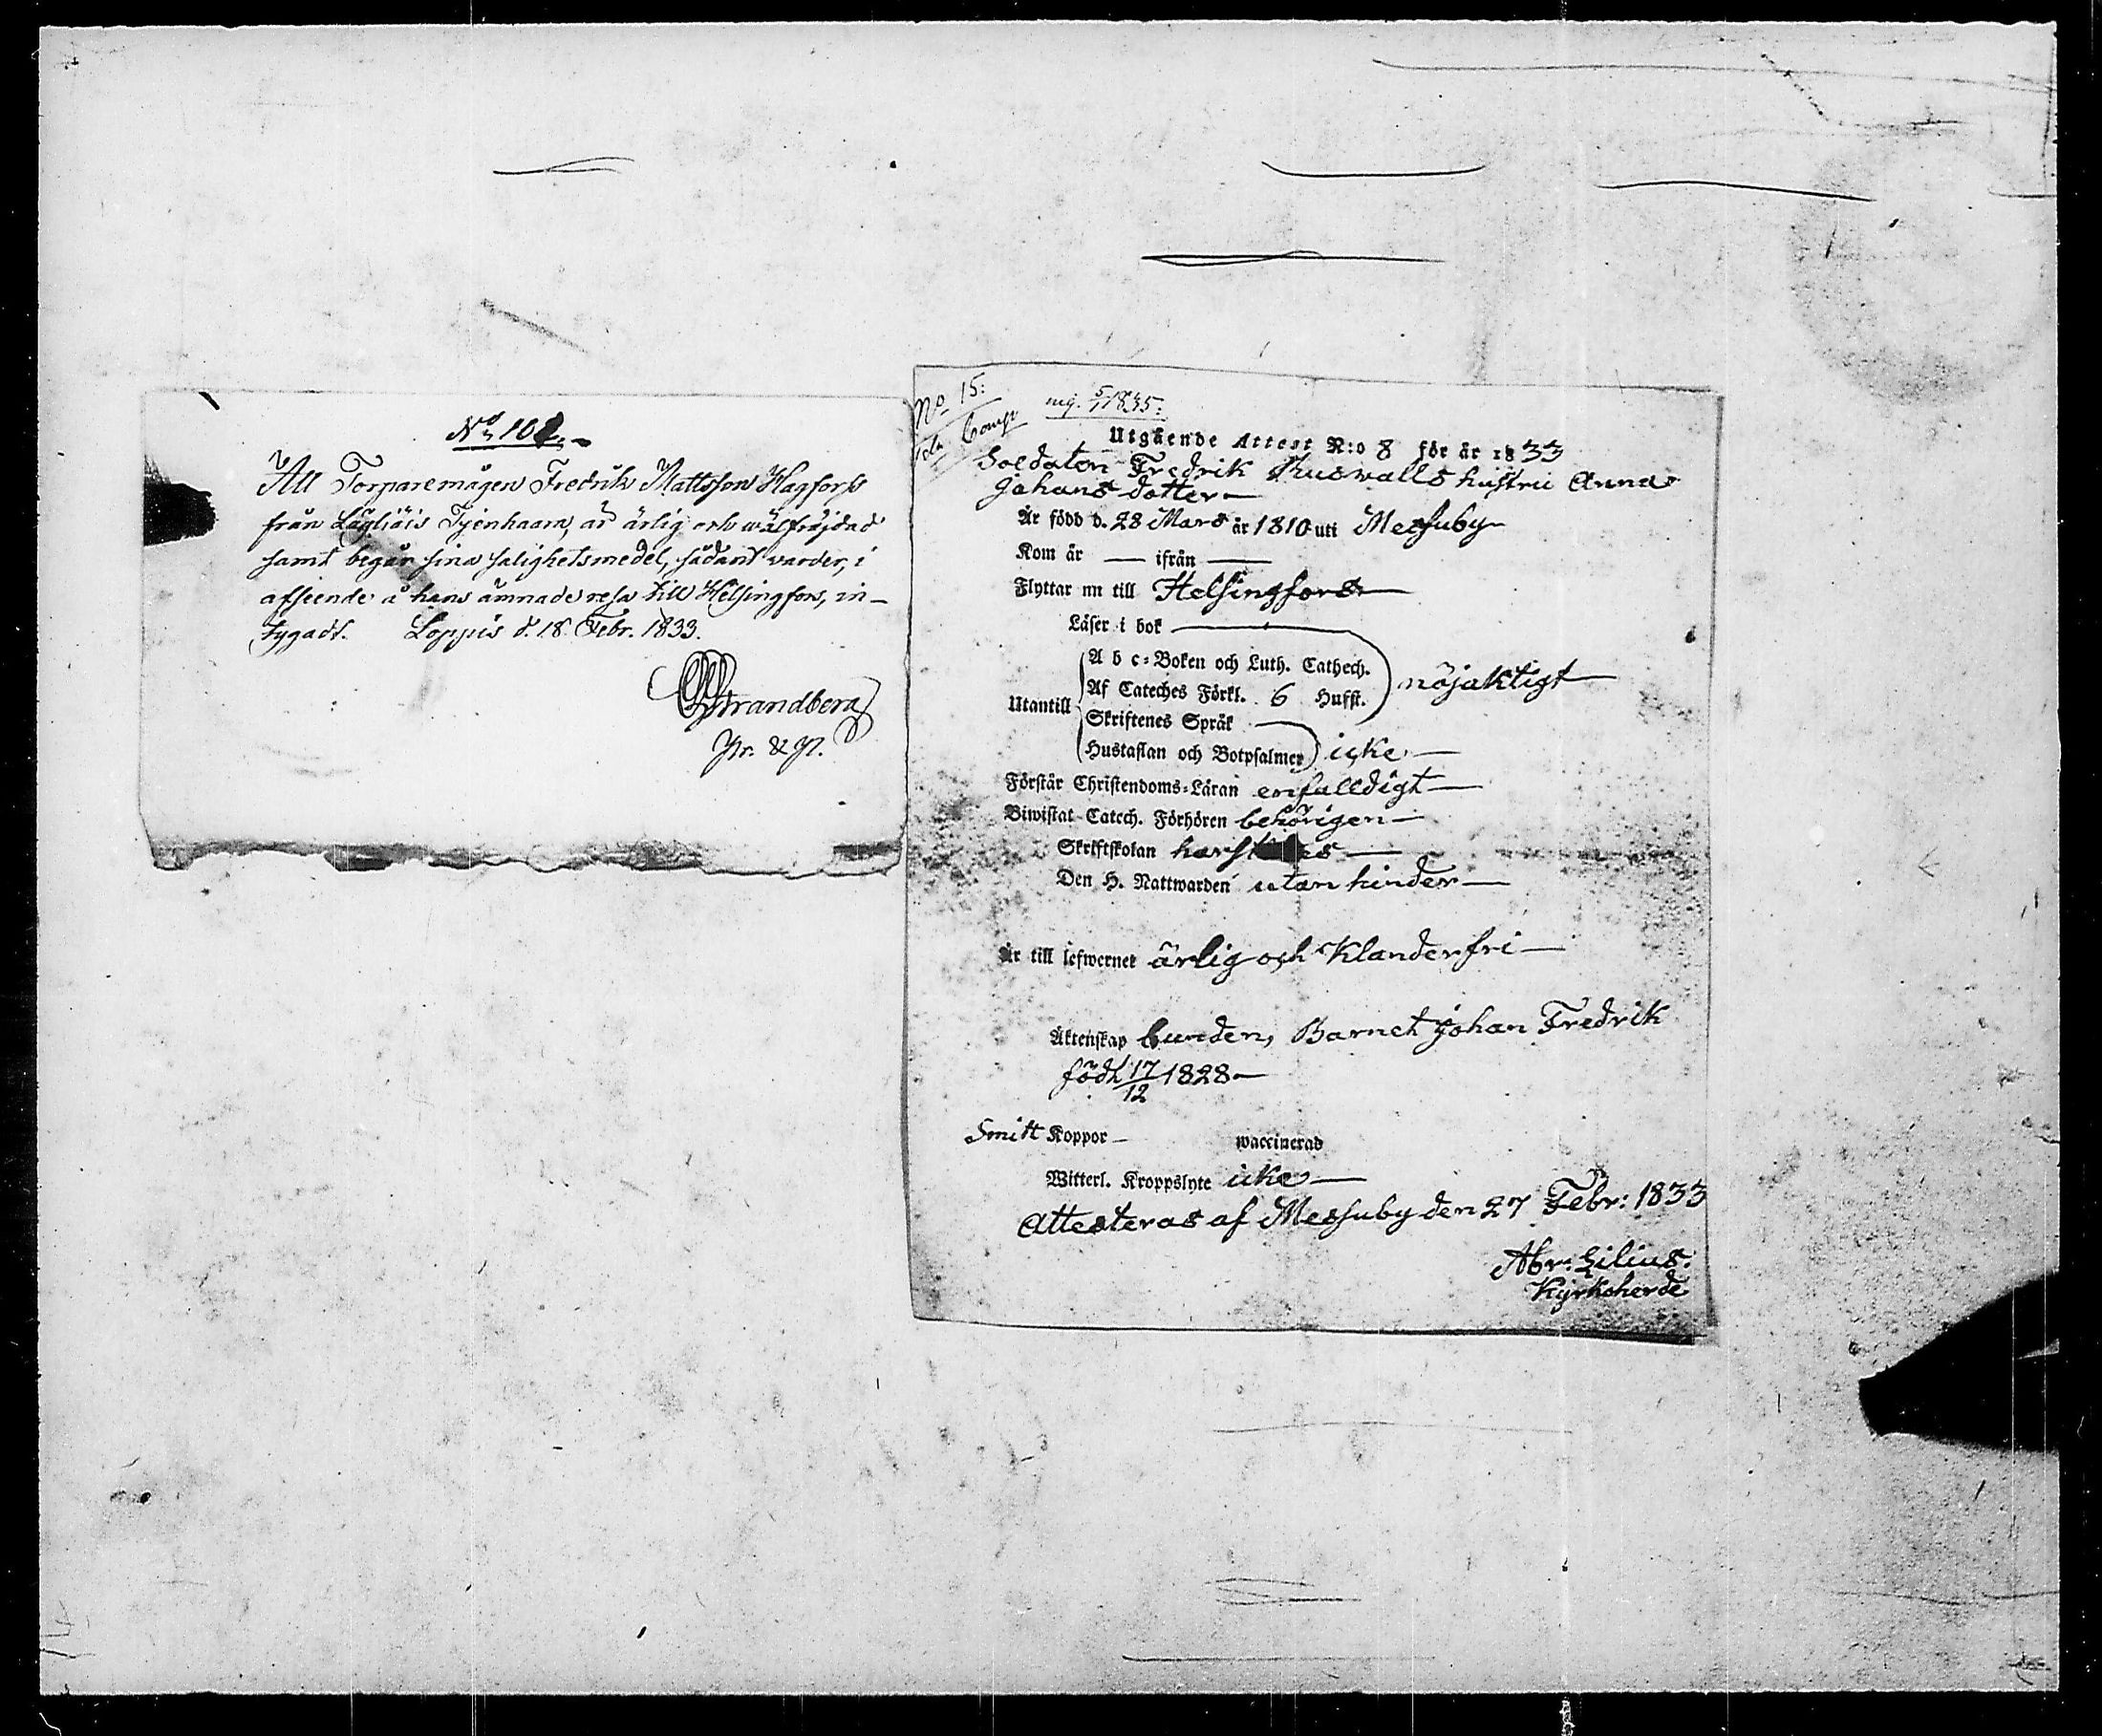 No 101.
Att Torparemågen Fredrik Mattsson Hagforss
från Läyliäis Tyenhaara, är ärlig och wälfräjdad
samt begår sina salighetsmedel, sådant varder, i
afseende å hans ämnade resa till Helsingfors, in-
tygadt. Loppis d. 18 Febr. 1833.
Strandberg
Pr. & P.
No 15:
1sta Comp
ing. 5/1 1835:
Utgående Attest N:o 8 för år 1833
Soldaten Fredrik hustru Anna
Johans dotter
Är född d. 28 Mars år 1810 uti Messuby
Kom år — ifrån —
Flyttar nu till Helsingfors
Läser i bok
A b c-Boken och Luth. Cathech.
Af Cateches Förkl. 6 Hufst.
nöjaktigt
Utantill
Skriftenes Språk
Hustaflan och Botpsalmer icke
Förstår Christendoms-Läran enfalldigt
Biwistat Catech. Förhören behörigen
Skriftskolan
Den H. Nattwarden utan hinder
Är till lefwernet ärlig och Klanderfri
Äktenskap bunden, Barnet Johan Fredrik
född 17/12 1828
Smitt Koppor — waccinerad
Witterl. Kroppslyte icke
Attesteras af Messuby den 27 Febr: 1833
Abr: Lilius.
Kyrkoherde